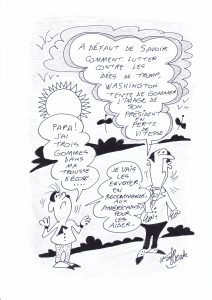 A DÉFAUT DE SAVOIR
COMMENT LUTTER
CONTRE LES
IDÉES DE TRUMP,
WASHINGTON
TENTE DE GOMMER
L'IMAGE DE
SON
PRÉSIDENT
EN
PERTE
DE
VITESSE
PAPA!
J'AI
TROIS
GOMMES
DANS
MA
TROUSSE
D'ÉCOLE...
JE VAIS
LES
ENVOYER,
EN
RECOMMANDÉ,
AUX
AMÉRICAINS
POUR
LES
AIDER.